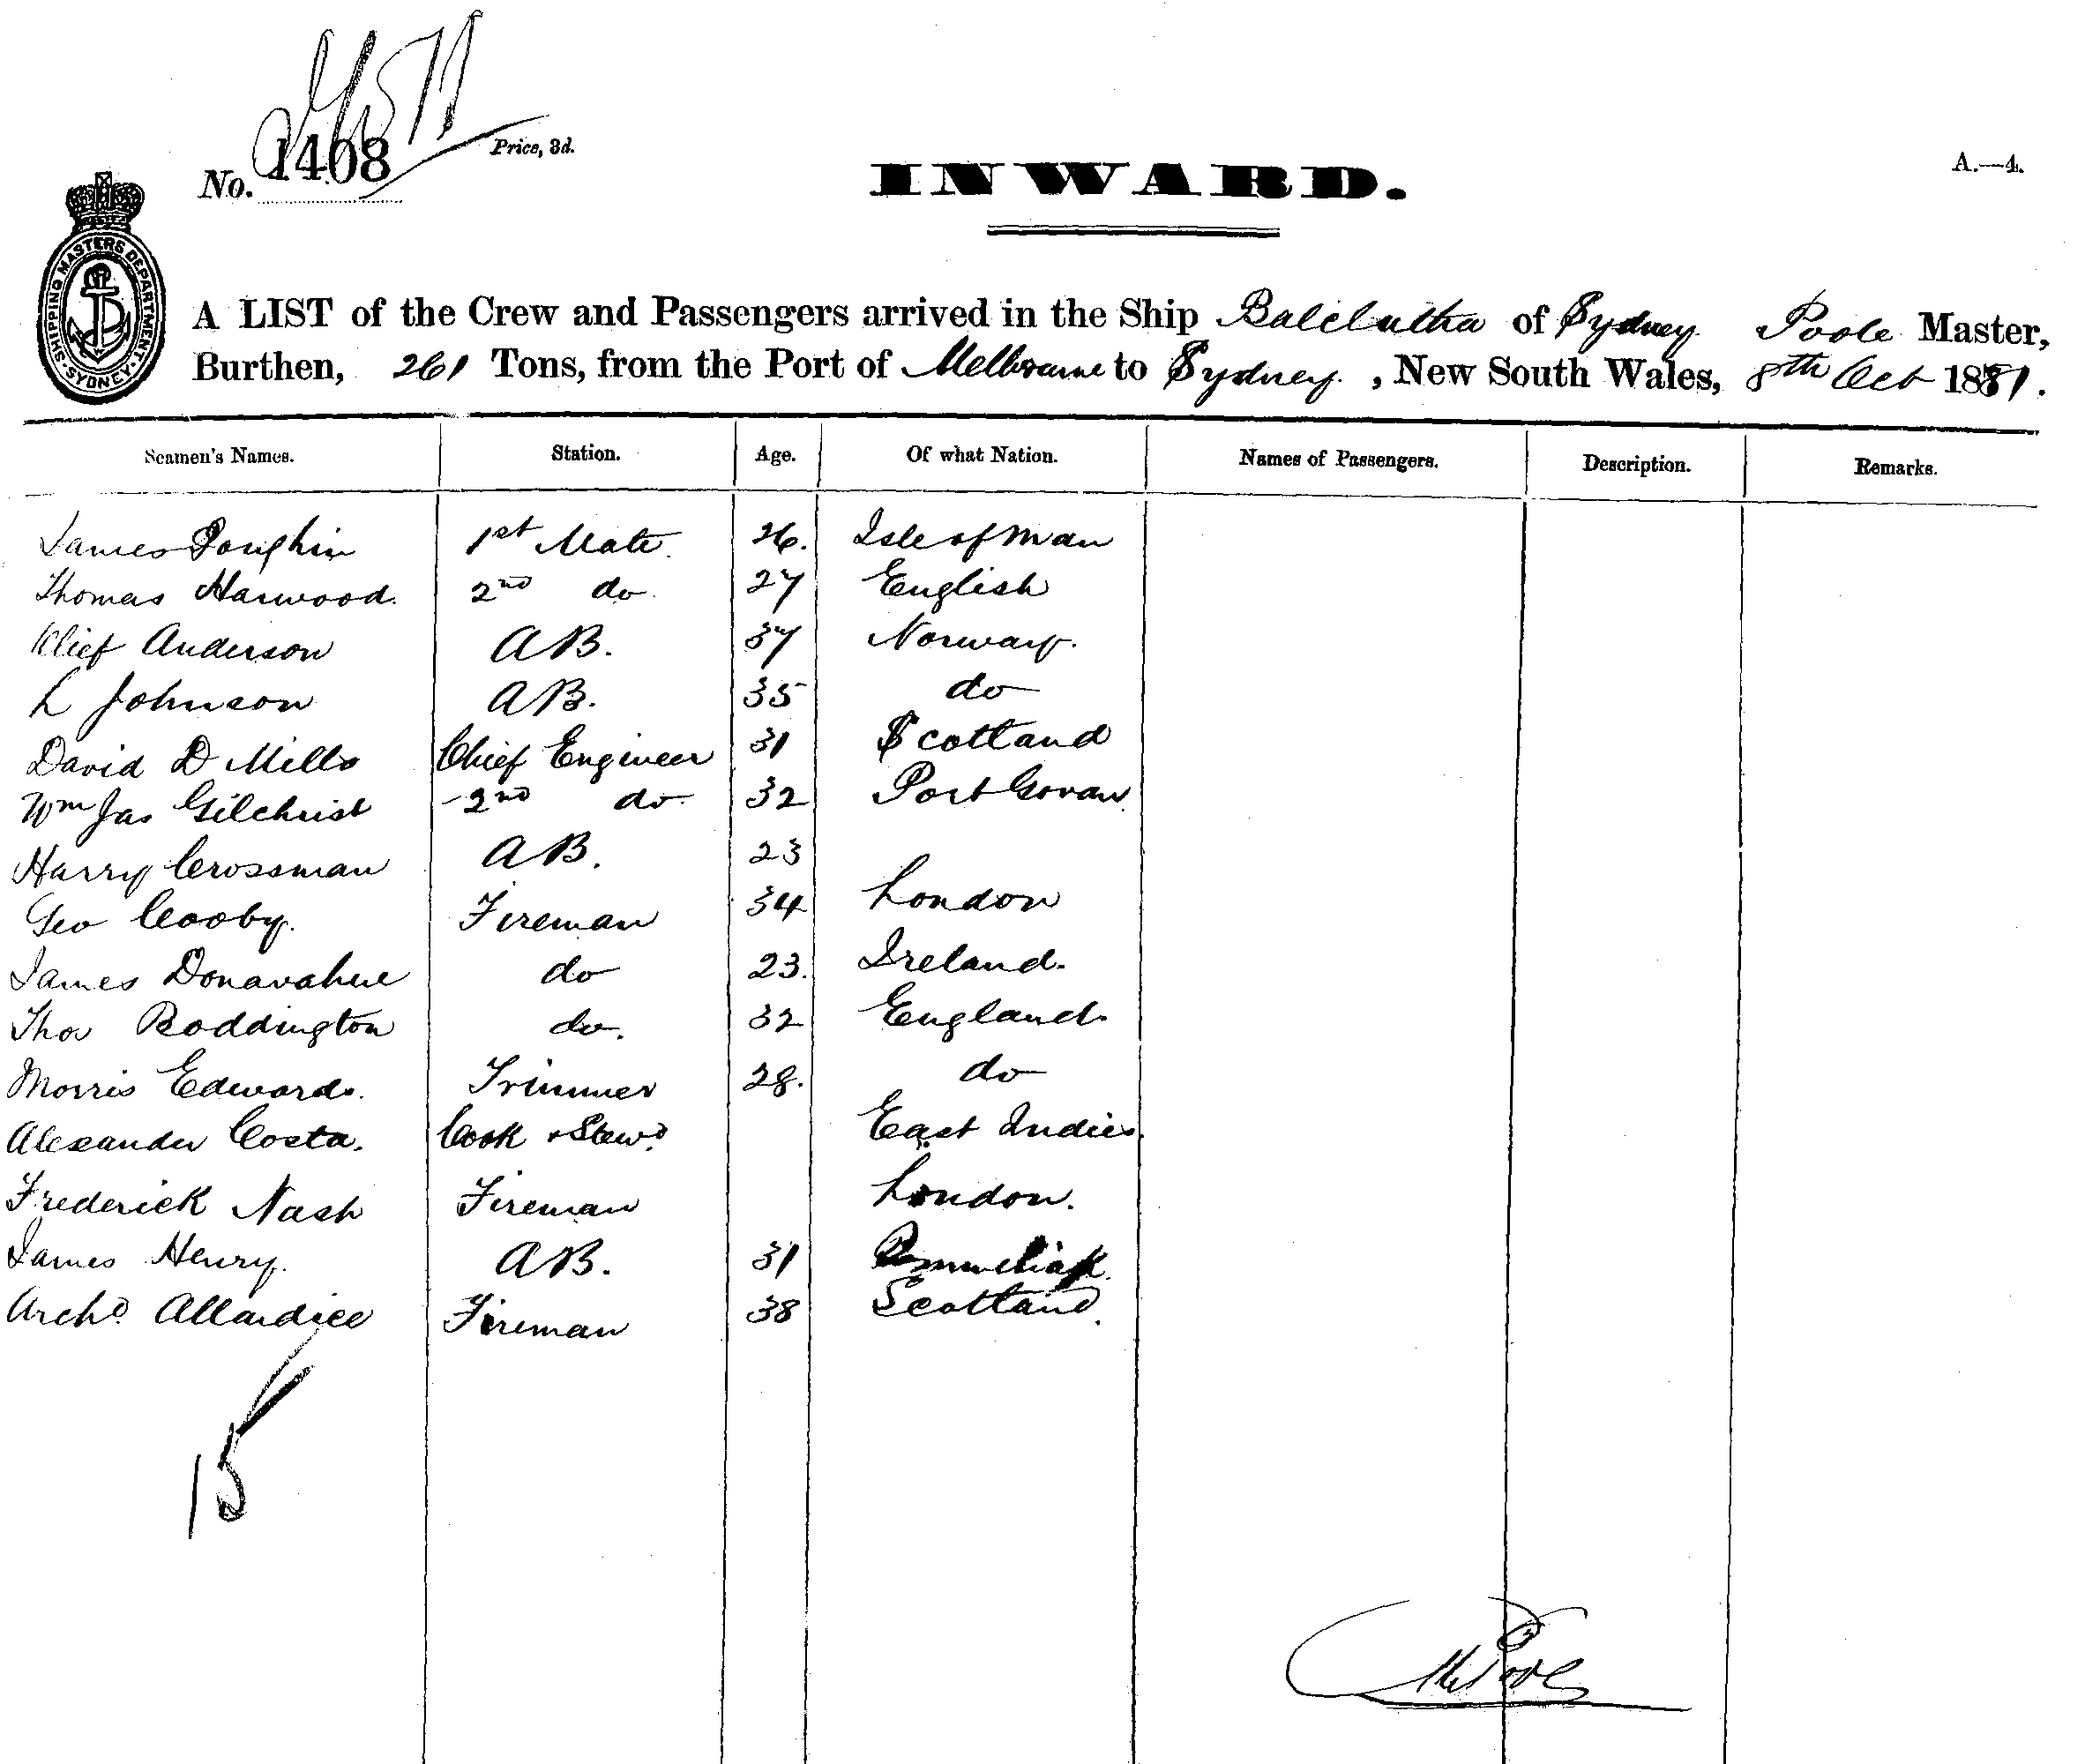 No. 1408 Price, 3d.
INWARD.
A.—4.
SHIPPING MASTERS DEPARTMENT. SYDNEY.
A LIST of the Crew and Passengers arrived in the Ship Balclutha of Sydney Poole Master,
Burthen, 261 Tons, from the Port of Melbourne to Sydney, New South Wales, 8th Oct 1881.
Seamen's Names. Station. Age. Of what Nation. Names of Passengers. Description. Remarks.
James 1st Mate. 26. Isle of Man
Thomas Harwood. 2nd do 27 English
Anderson AB. 37 Norway.
L Johnson AB. 35 do
David D Mills Chief Engineer 31 Scotland
Wm Jas Gilchrist 2nd do 32 Port Govan
Harry Crossman AB. 23
Geo Cooby. Fireman 34 London
James Donavahue do 23. Ireland.
Thos Boddington do. 32 England.
Morris Edwards. Trimmer 28. do
Alexander Costa. Cook & Stewd East Indies.
Frederick Nash Fireman London.
James Henry. AB. 31
Archd Allardice Fireman 38 Scotland.
15
Poole